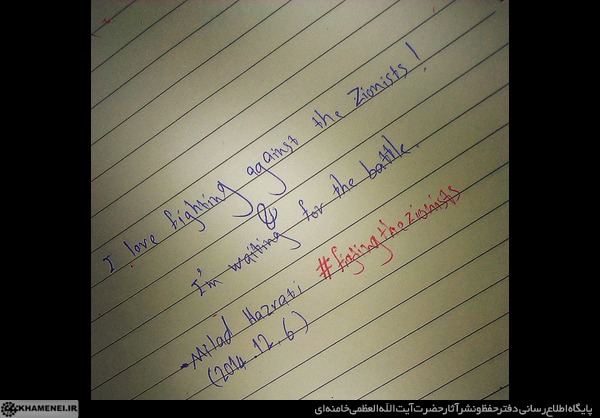 I love fighting against the Zionists!
&
I'm waiting for the battle.
#figtingthezionists
- Milad Hazrati
(2014.12.6)
KHAMENEI.IR
پایگاه اطلاع‌رسانی دفتر حفظ و نشر آثار حضرت آیت‌الله‌العظمی خامنه‌ای